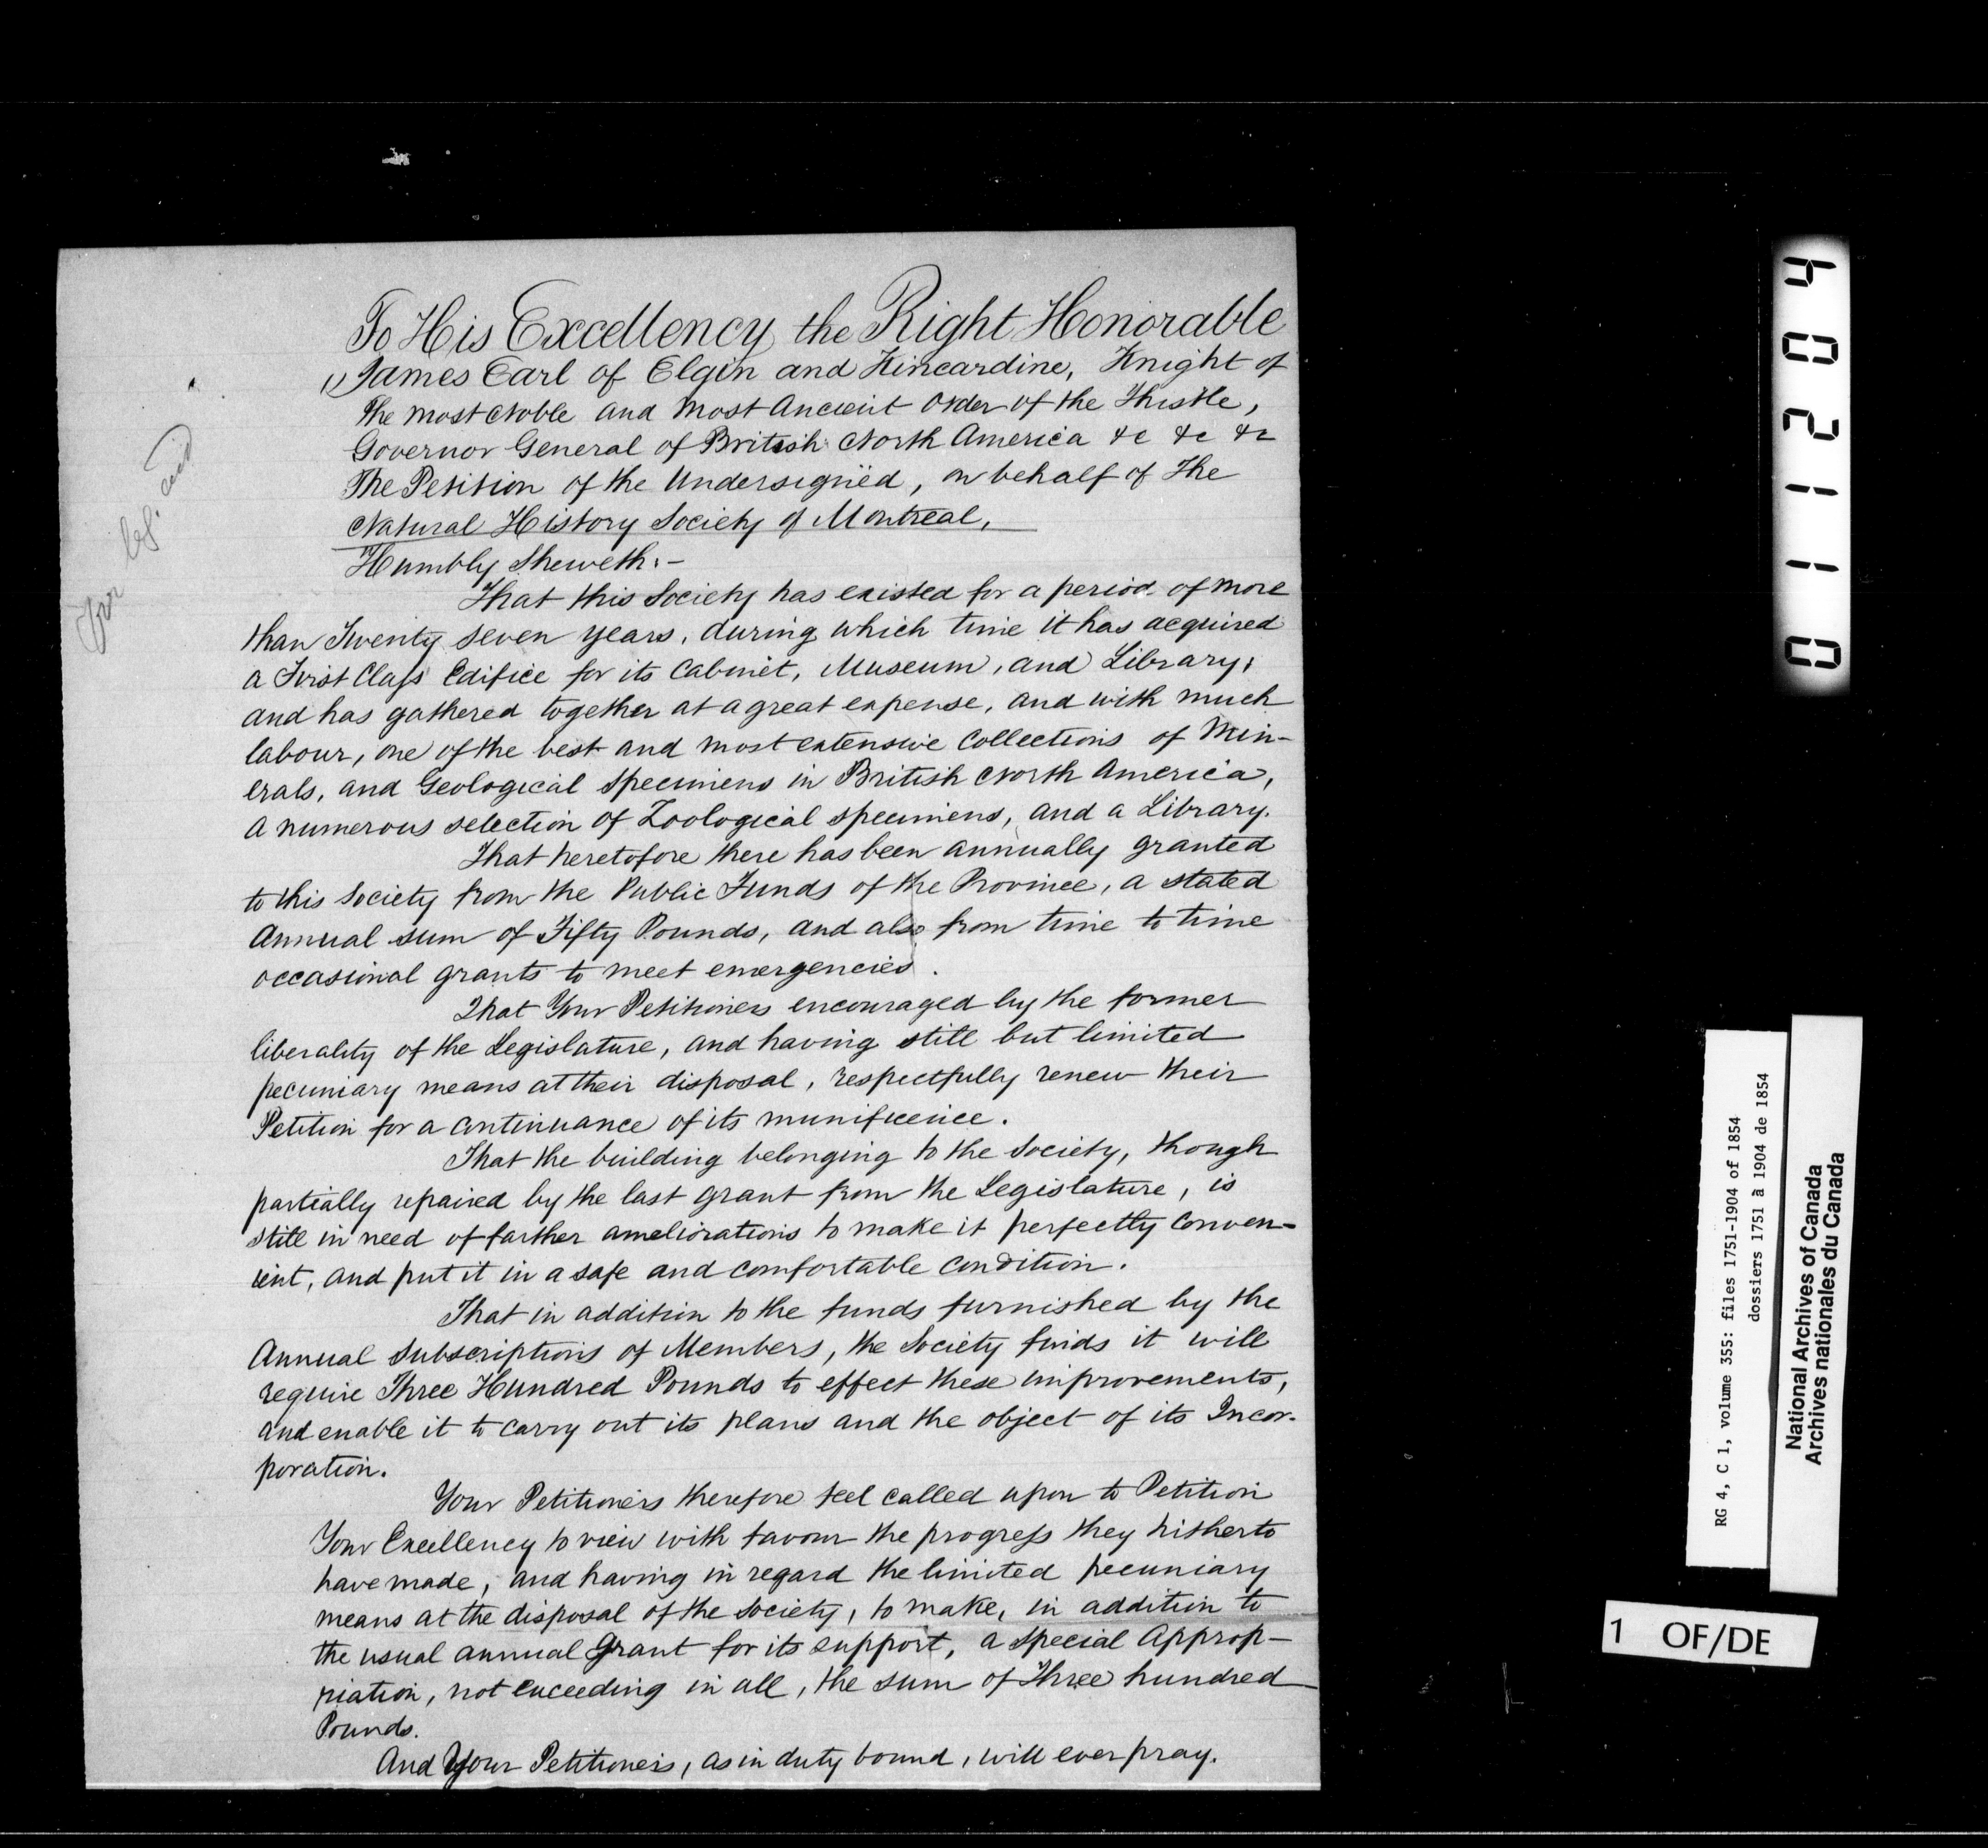 To His Excellency the Right Honorable
James Earl of Elgin and Kincardine, Knight of
the most Noble and most Ancient Order of the Thistle,
Governor General of British North America &c &c &c
The Petition of the Undersigned, on behalf of The
Natural History Society of Montreal,
Humbly Sheweth:-
That this Society has existed for a period of more
than Twenty seven years, during which time it has acquired
a First Class Edifice for its Cabinet, Museum, and Library,
and has gathered together at a great expense, and with much
labour, one of the best and most extensive Collections of Min-
erals, and Geological Specimens in British North America,
a numerous selection of Zoological specimens, and a Library.
That heretofore there has been annually granted
to this Society from the Public Funds of the Province, a stated
Annual sum of Fifty Pounds, and also from time to time
occasional grants to meet emergencies.
That Your Petitioners encouraged by the former
liberality of the Legislature, and having still but limited
pecuniary means at their disposal, respectfully renew their
Petition for a continuance of its munificence.
That the building belonging to the Society, though
partially repaired by the last grant from the Legislature, is
still in need of farther ameliorations to make it perfectly conven-
ient, and put it in a safe and comfortable condition.
That in addition to the funds furnished by the
Annual Subscriptions of Members, the Society finds it will
require Three Hundred Pounds to effect these improvements,
and enable it to carry out its plans and the object of its Incor-
poration.
Your Petitioners therefore feel called upon to Petition
Your Excellency to view with favour the progress they hitherto
have made, and having in regard the limited pecuniary
means at the disposal of the Society, to make, in addition to
the usual annual Grant for its support, a special Approp-
riation, not exceeding in all, the sum of Three hundred
Pounds.
And Your Petitioners, as in duty bound, will ever pray.
011204
RG 4, C 1, volume 355: files 1751-1904 of 1854
dossiers 1751 à 1904 de 1854
National Archives of Canada
Archives nationales du Canada
1 OF/DE